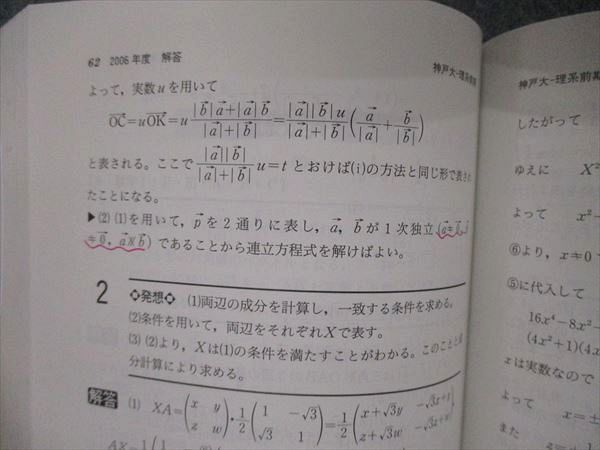 62 2006年度 解答
神戸大-理系前期
よって，実数uを用いて
OC→=uOK→=u |b→|a→+|a→|b→ / |a→|+|b→| = |a→||b→|u / |a→|+|b→| (a→/|a→| + b→/|b→|)
と表される。ここで |a→||b→| / |a→|+|b→| u=t とおけば(i)の方法と同じ形で表され
たことになる。
▶(2) (1)を用いて，p→を2通りに表し，a→，b→が1次独立(a→≠0→，b→
≠0→，a→∦b→)であることから連立方程式を解けばよい。
2 ◇発想◇ (1)両辺の成分を計算し，一致する条件を求める。
(2)条件を用いて，両辺をそれぞれXで表す。
(3) (2)より，Xは(1)の条件を満たすことがわかる。このことと成
分計算により求める。
解答 (1) XA=(x y z w)・1/2(1 -√3 √3 1)=1/2(x+√3y -√3x+y z+√3w -√3z+w)
神戸大-理系前期
したがって
ゆえに X²
よって x²-
⑥より，x≠0
⑤に代入して
16x⁴-8x²-
(4x²+1)(4x
xは実数なので
よって x=±
また